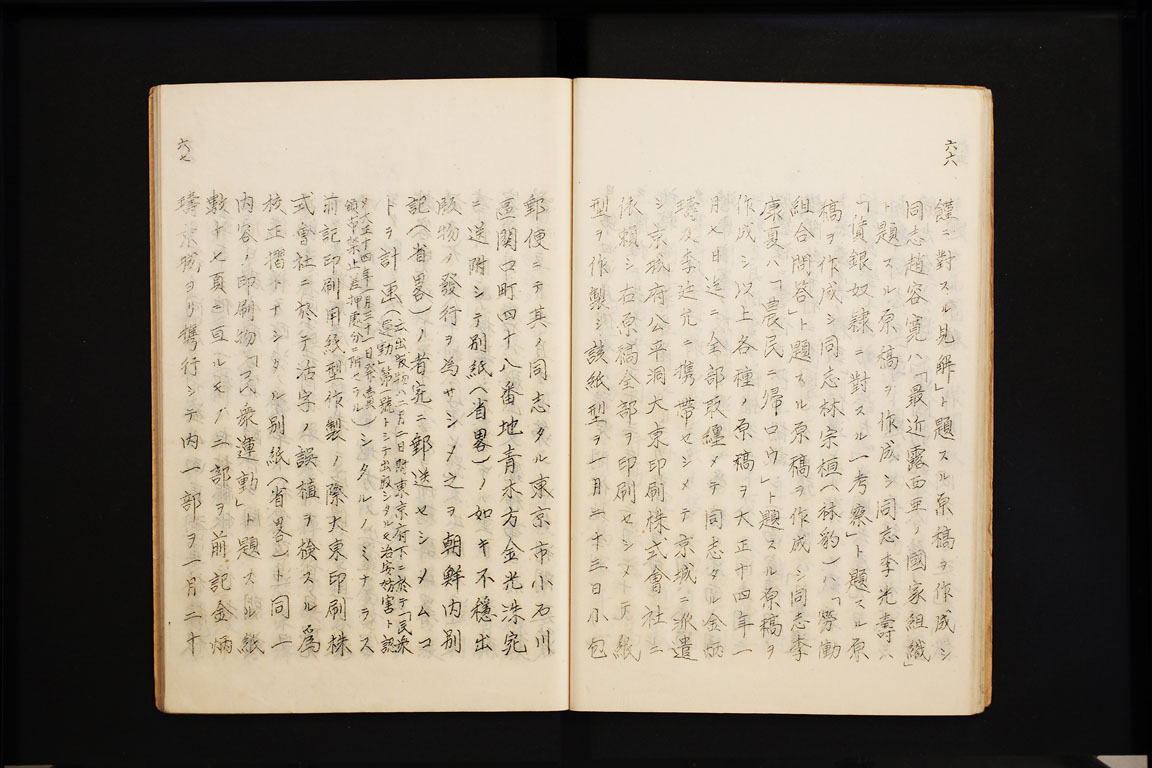 六六
謹ニ對スル見解」ト題スル原稿ヲ作成シ
同志趙容寛ハ「最近露西亜ノ國家組織」
ト題スル原稿ヲ作成シ同志李光壽ハ
「賃銀奴隷ニ對スル一考察」ト題スル原
稿ヲ作成シ同志林宗桓(林豹)ハ「勞働
組合問答」ト題スル原稿ヲ作成シ同志李
康夏ハ「農民ニ帰ロウ」ト題スル原稿ヲ
作成シ以上各種ノ原稿ヲ大正十四年一
月七日迄ニ全部取纏メテ同志タル金炳
璹及李廷允ニ携帶セシメテ京城ニ派遣
シ京城府公平洞大東印刷株式會社ニ
依頼シ右原稿全部ヲ印刷セシメテ紙
型ヲ作製シ該紙型ヲ一月二十三日小包
六七
郵便ニテ其ノ同志タル東京市小石川
區関口町四十八番地青木方金光洙宛
ニ送附シテ別紙(省畧)ノ如キ不穩出
版物ノ發行ヲ為サシメ之ヲ朝鮮内別
記(省畧)ノ者宛ニ郵送セシメムコ
トヲ計画(云出版物ハ二月二日関東京府下ニ於テ「民衆
運動」第一號トシテ出版シタルモ治安妨害ト認
メ大正十四年一月三十一日発賣
頒布禁止差押處分ニ附セラル)シタルノミナラス
前記印刷用紙型作製ノ際大東印刷株
式會社ニ於テ活字ノ誤植ヲ検スル為
校正摺トナシタル別紙(省畧)ト同一
内容ノ印刷物「民衆運動」ト題スル紙
數十七頁ニ亘ルモノ二部ヲ前記金炳
璹京城ヨリ携行シテ内一部ヲ一月二十